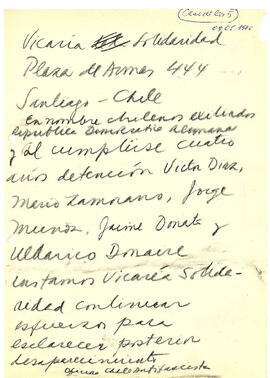 (Caso de los 5)
Vicaria Solidaridad
Plaza de Armas 444
Santiago - Chile
En nombre chilenos exiliados
Republica Democratica Alemana
y al cumplirse cuatro
años detención Victor Diaz,
Mario Zamorano, Jorge
Munoz, Jaime Donato y
Uldarico Donaire
instamos Vicaría Solida-
ridad continuar
esfuerzo para
esclarecer posterior
desaparecimiento
oficina chile antifascista